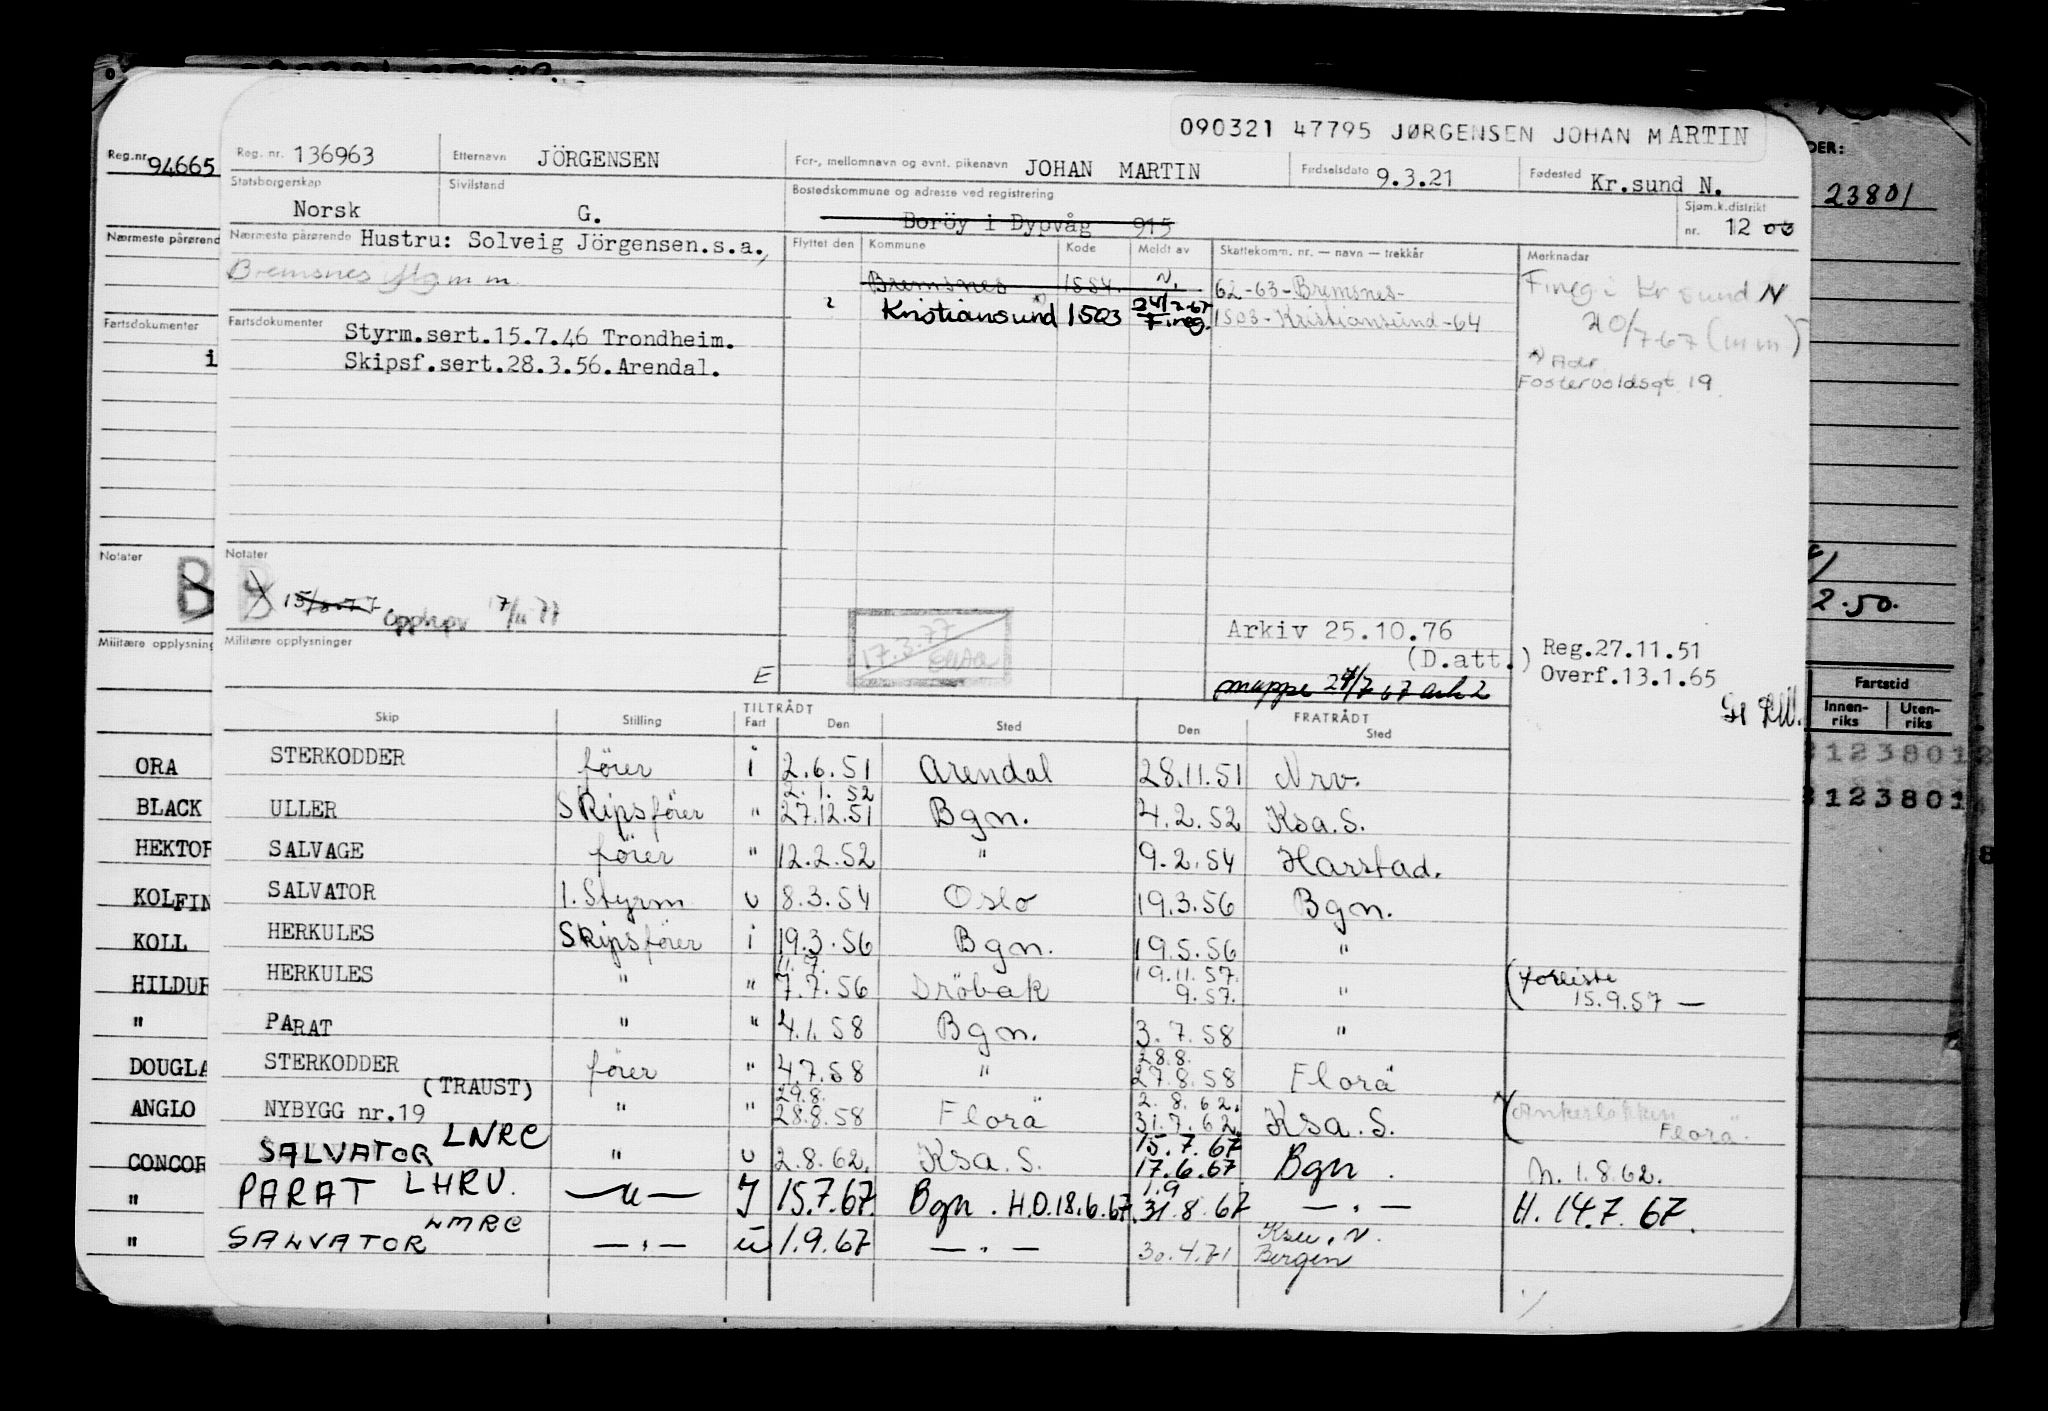 090321 47795 JØRGENSEN JOHAN MARTIN
Reg.nr. 94665
Reg. nr. 136963 Etternavn JÖRGENSEN For-, mellomnavn og evnt. pikenavn JOHAN MARTIN Fødselsdato 9.3.21 Fødested Kr.sund N.
Statsborgerskap Norsk Sivilstand G. Bostedskommune og adresse ved registrering Boröy i Dypvåg 915 Sjøm.k.distrikt nr. 12 03
DER:
23801
Nærmeste pårørend
Nærmeste pårørende Hustru: Solveig Jörgensen.s.a.,
Flyttet den Kommune Kode Meldt av Skattekomm. nr. — navn — trekkår Merknader
Bremsnes
Bremsnes 1554. N. 62-63-Bremsnes-
Kristiansund 1503 24/2-67 Fireg. 1503-Kristiansund-64
Fireg i Kr sund N
20/7 67 (mm)
Adr.
Fostervoldsgt 19
Fartsdokumenter
i
Fartsdokumenter Styrm.sert.15.7.46 Trondheim.
Skipsf.sert.28.3.56.Arendal.
Notater
B
Notater
B Opphev 17/11 77
17.3.77
2.50.
Militære opplysning
Militære opplysninger
E
Arkiv 25.10.76
(D.att.)
mappe 24/7 67 ark 2
Reg.27.11.51
Overf.13.1.65
Fartstid
Innen-riks Uten-riks
Skip Stilling TILTRÅDT Fart Den Sted FRATRÅDT Den Sted
ORA STERKODDER förer i 2.6.51 Arendal 28.11.51 Nrv.
2.1.52
BLACK ULLER Skipsförer " 27.12.51 Bgn. 4.2.52 Ksa.S.
HEKTOR SALVAGE förer " 12.2.52 " 9.2.54 Harstad.
KOLFIN SALVATOR 1. Styrm u 8.3.54 Oslo 19.3.56 Bgn.
KOLL HERKULES Skipsförer i 19.3.56 Bgn. 19.5.56 "
11.7. 19.11.57.
HILDUR HERKULES " " 7.7.56 Dröbak 9.57. " (forliste 15.9.57 —
" PARAT " " 4.1.58 Bgn. 3.7.58 "
28.8.
DOUGLA STERKODDER förer " 4.7.58 " 27.8.58 Florä
(TRAUST) 29.8. 2.8.62.
ANGLO NYBYGG nr.19 " " 28.8.58 Florä 31.7.62. Ksa.S. (Ankerløkken Florä.
15.7.67
CONCOR SALVATOR LNRC " u 2.8.62. Ksa.S. 17.6.67 Bgn. N. 1.8.62.
1.9
" PARAT LHRU. —"— I 15.7.67. Bgn. H.O.18.6.67. 31.8.67 — . — H. 14.7.67.
" SALVATOR LMRC — . — u 1.9.67 — . — 30.4.71 Ksu.N. Bergen